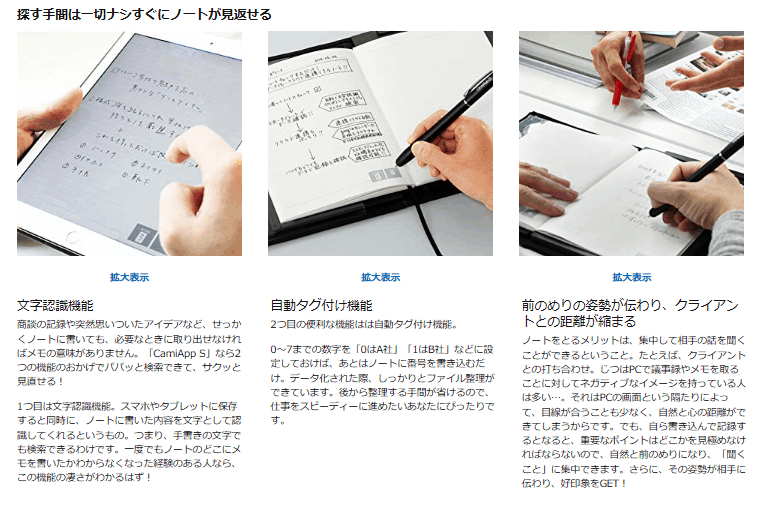 探す手間は一切ナシすぐにノートが見返せる
拡大表示
文字認識機能
商談の記録や突然思いついたアイデアなど、せっか
くノートに書いても、必要なときに取り出せなけれ
ばメモの意味がありません。「CamiApp S」なら2
つの機能のおかげでパパッと検索できて、サクッと
見直せる！
1つ目は文字認識機能。スマホやタブレットに保存
すると同時に、ノートに書いた内容を文字として認
識してくれるというもの。つまり、手書きの文字で
も検索できるわけです。一度でもノートのどこにメ
モを書いたかわからなくなった経験のある人なら、
この機能の凄さがわかるはず！
拡大表示
自動タグ付け機能
2つ目の便利な機能はは自動タグ付け機能。
0～7までの数字を「0はA社」「1はB社」などに設
定しておけば、あとはノートに番号を書き込むだ
け。データ化された際、しっかりとファイル整理が
できています。後から整理する手間が省けるので、
仕事をスピーディーに進めたいあなたにぴったりで
す。
拡大表示
前のめりの姿勢が伝わり、クライアン
トとの距離が縮まる
ノートをとるメリットは、集中して相手の話を聞く
ことができるということ。たとえば、クライアント
との打ち合わせ。じつはPCで議事録やメモを取る
ことに対してネガティブなイメージを持っている人
は多い…。それはPCの画面という隔たりによっ
て、目線が合うことも少なく、自然と心の距離がで
きてしまうからです。でも、自ら書き込んで記録す
るとなると、重要なポイントはどこかを見極めなけ
ればならないので、自然と前のめりになり、「聞く
こと」に集中できます。さらに、その姿勢が相手に
伝わり、好印象をGET！